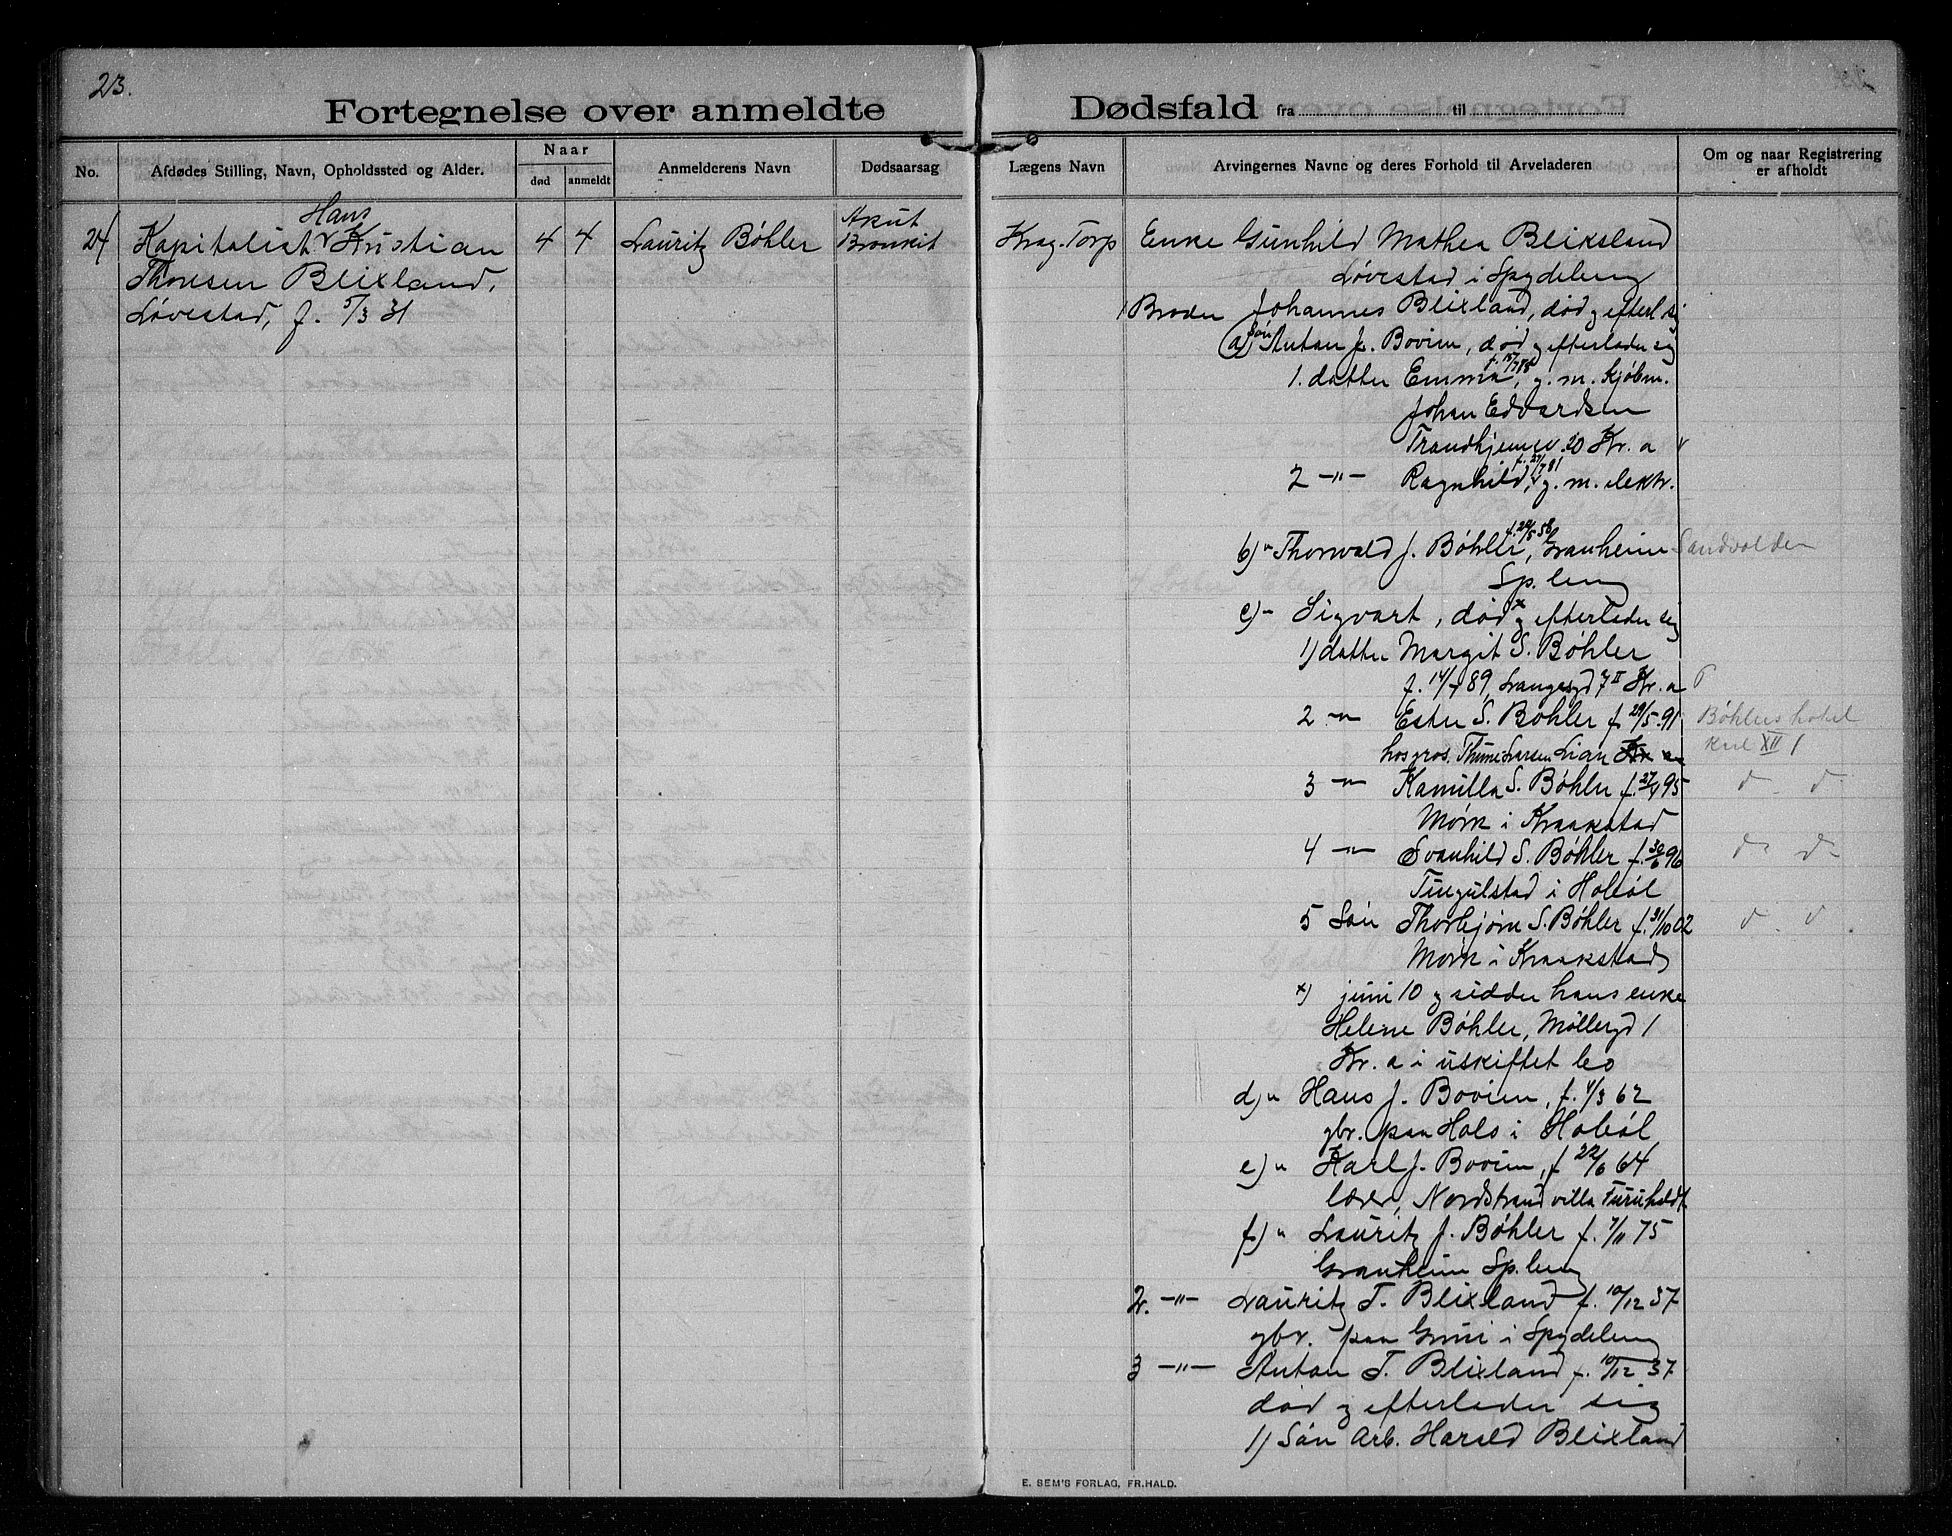 23.
Fortegnelse over anmeldte
Dødsfald fra til
No.
Afdødes Stilling, Navn, Opholdssted og Alder.
Naar
død
anmeldt
Anmelderens Navn
Dødsaarsag
Lægens Navn
Arvingernes Navne og deres Forhold til Arveladeren
Om og naar Registrering
er afholdt
Hans
24 Kapitalist Kristian
Thoresen Blixland,
Løvestad, f. 5/3 31
4 4
Lauritz Bøhler
Akut
Bronkit
Krag-Torp
Enke Gunhild Mathea Blixland
Løvestad i Spydeberg
1 Broder Johannes Blixland, død og efterl. sig
a) søn Anton J. Bovim, død og efterlader sig
1. datter Emma, g. m. Kjøbm.
Johan Edvardsen
Trondhjemsv. 20 Kr.a
2 -"- Ragnhild, g. m. elektr.
b) " Thorvald J. Bøhler, f. 28/5 58, Granheim Sandvolden
Sp.berg
c) - Sigvart, død x og efterlader sig
1) datter Margit S. Bøhler
f. 14/7 89, Langesgd 7 II Kr.a
2 -"- Ester S. Bøhler f. 29/5 91 Bøhlers hotel
hos gros. Thune Larsen Lian Kr. a
3 -"- Kamilla S. Bøhler f. 27/4 95
Mørk i Kraakstad
4 -"- Svanhild S. Bøhler f. 30/6 96
Tingulstad i Hobøl
5 Søn Thorbjørn S. Bøhler f. 31/10 02
Mørk i Kraakstad
x) juni 10 og sidder hans enke
Helene Bøhler, Møllergd 1
Kr. a i uskiftet bo
d) " Hans J. Bovim, f. 4/3 62
gbr. paa Hols i Hobøl
e) " Karl J. Bovim, f. 22/6 64
lærer, Nordstrand villa Furuholdt
f) " Lauritz J. Bøhler f. 7/11 75
Granheim Sp.berg
2. -"- Lauritz T. Blixland f. 10/12 37
gbr. paa Grini i Spydeberg
3 -"- Anton T. Blixland f. 10/12 37
død og efterlader sig
1) Søn Arb. Harald Blixland
E. SEM'S FORLAG, FR.HALD.